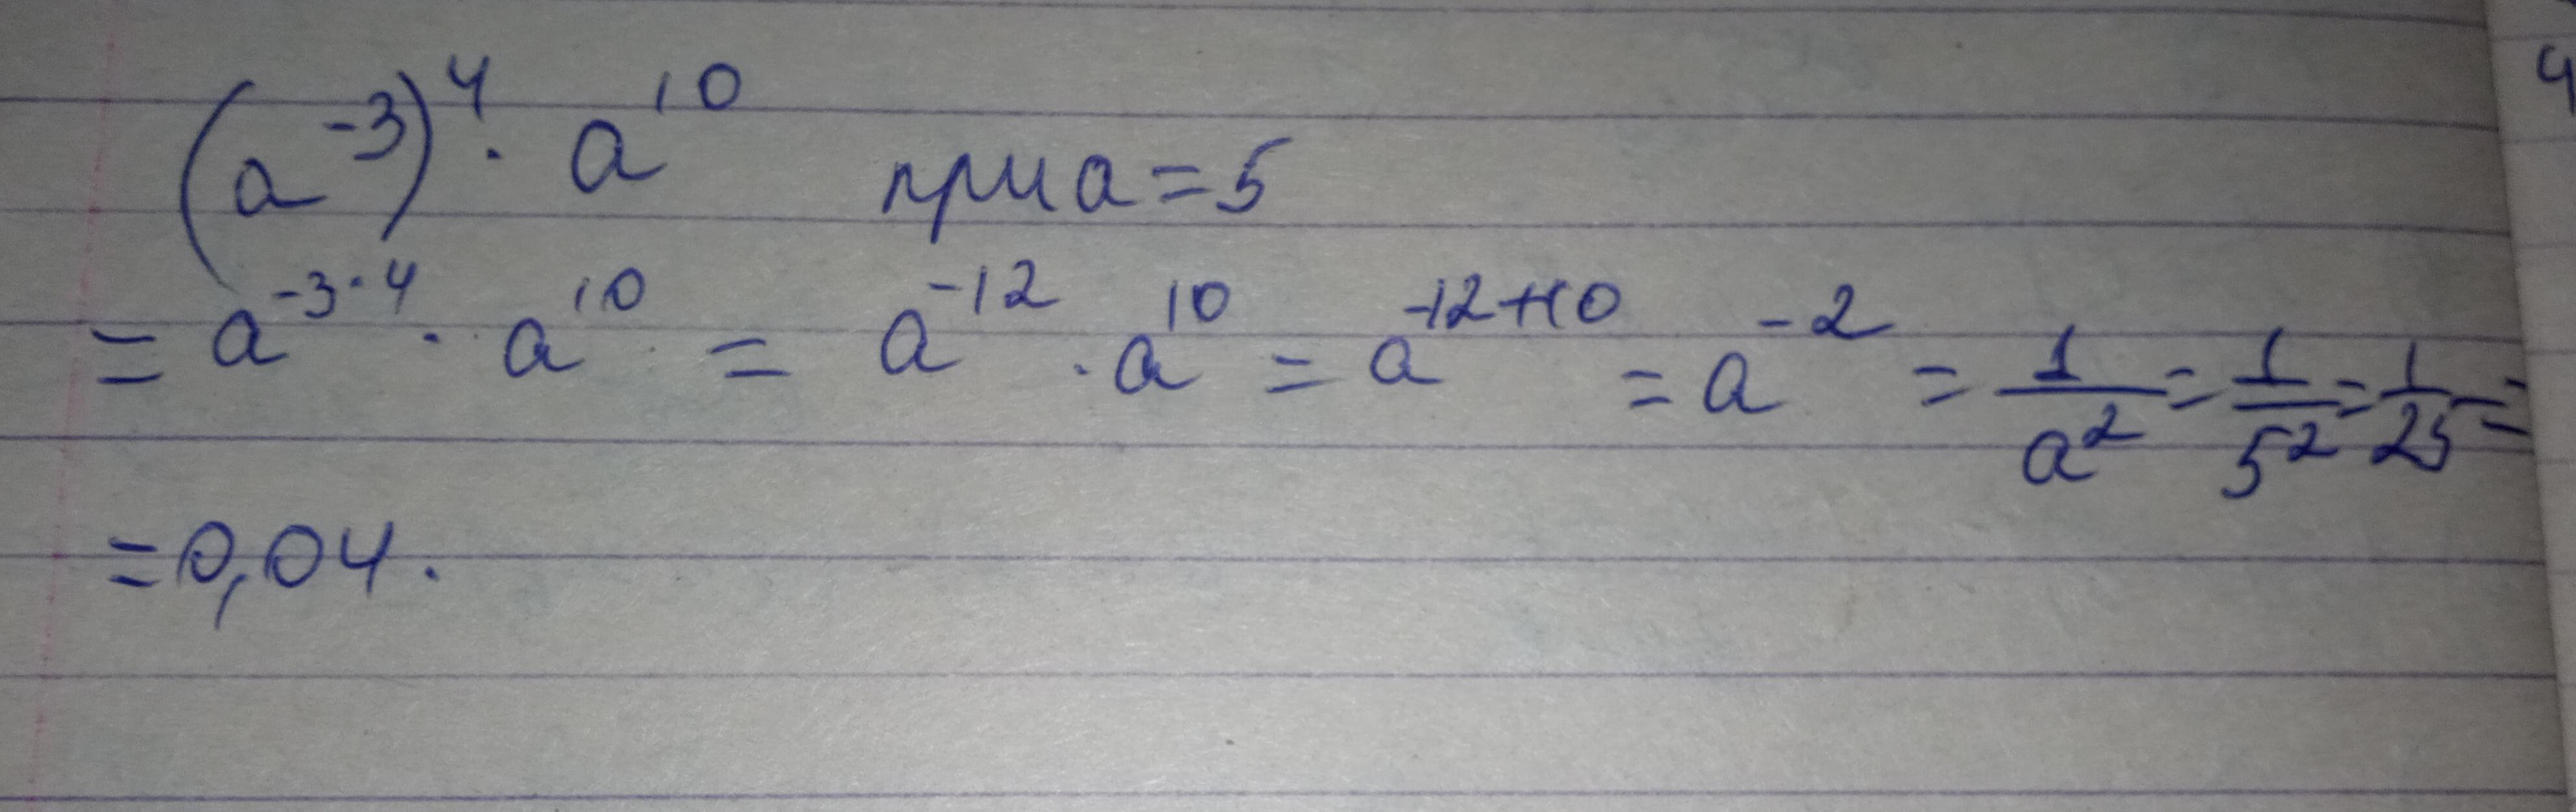 (a⁻³)⁴ · a¹⁰ при a = 5
= a⁻³·⁴ · a¹⁰ = a⁻¹² · a¹⁰ = a⁻¹²⁺¹⁰ = a⁻² = 1/a² = 1/5² = 1/25 =
= 0,04.